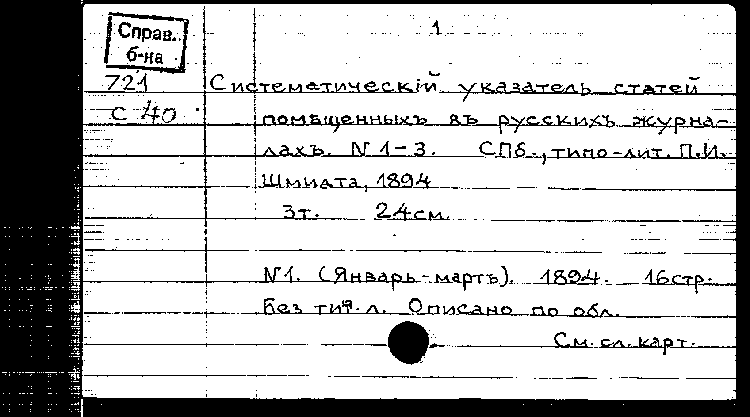 1
Справ.
б-ка
721 Систематическій указатель статей
С 40 помѣщенныхъ въ русскихъ журна-
лахъ. N 1-3. СПб., типо-лит. П.И.
Шмидта, 1894
3т. 24см.
N1. (Январь-мартъ). 1894. 16стр.
Без тит. л. Описано по обл.
См. сл. карт.